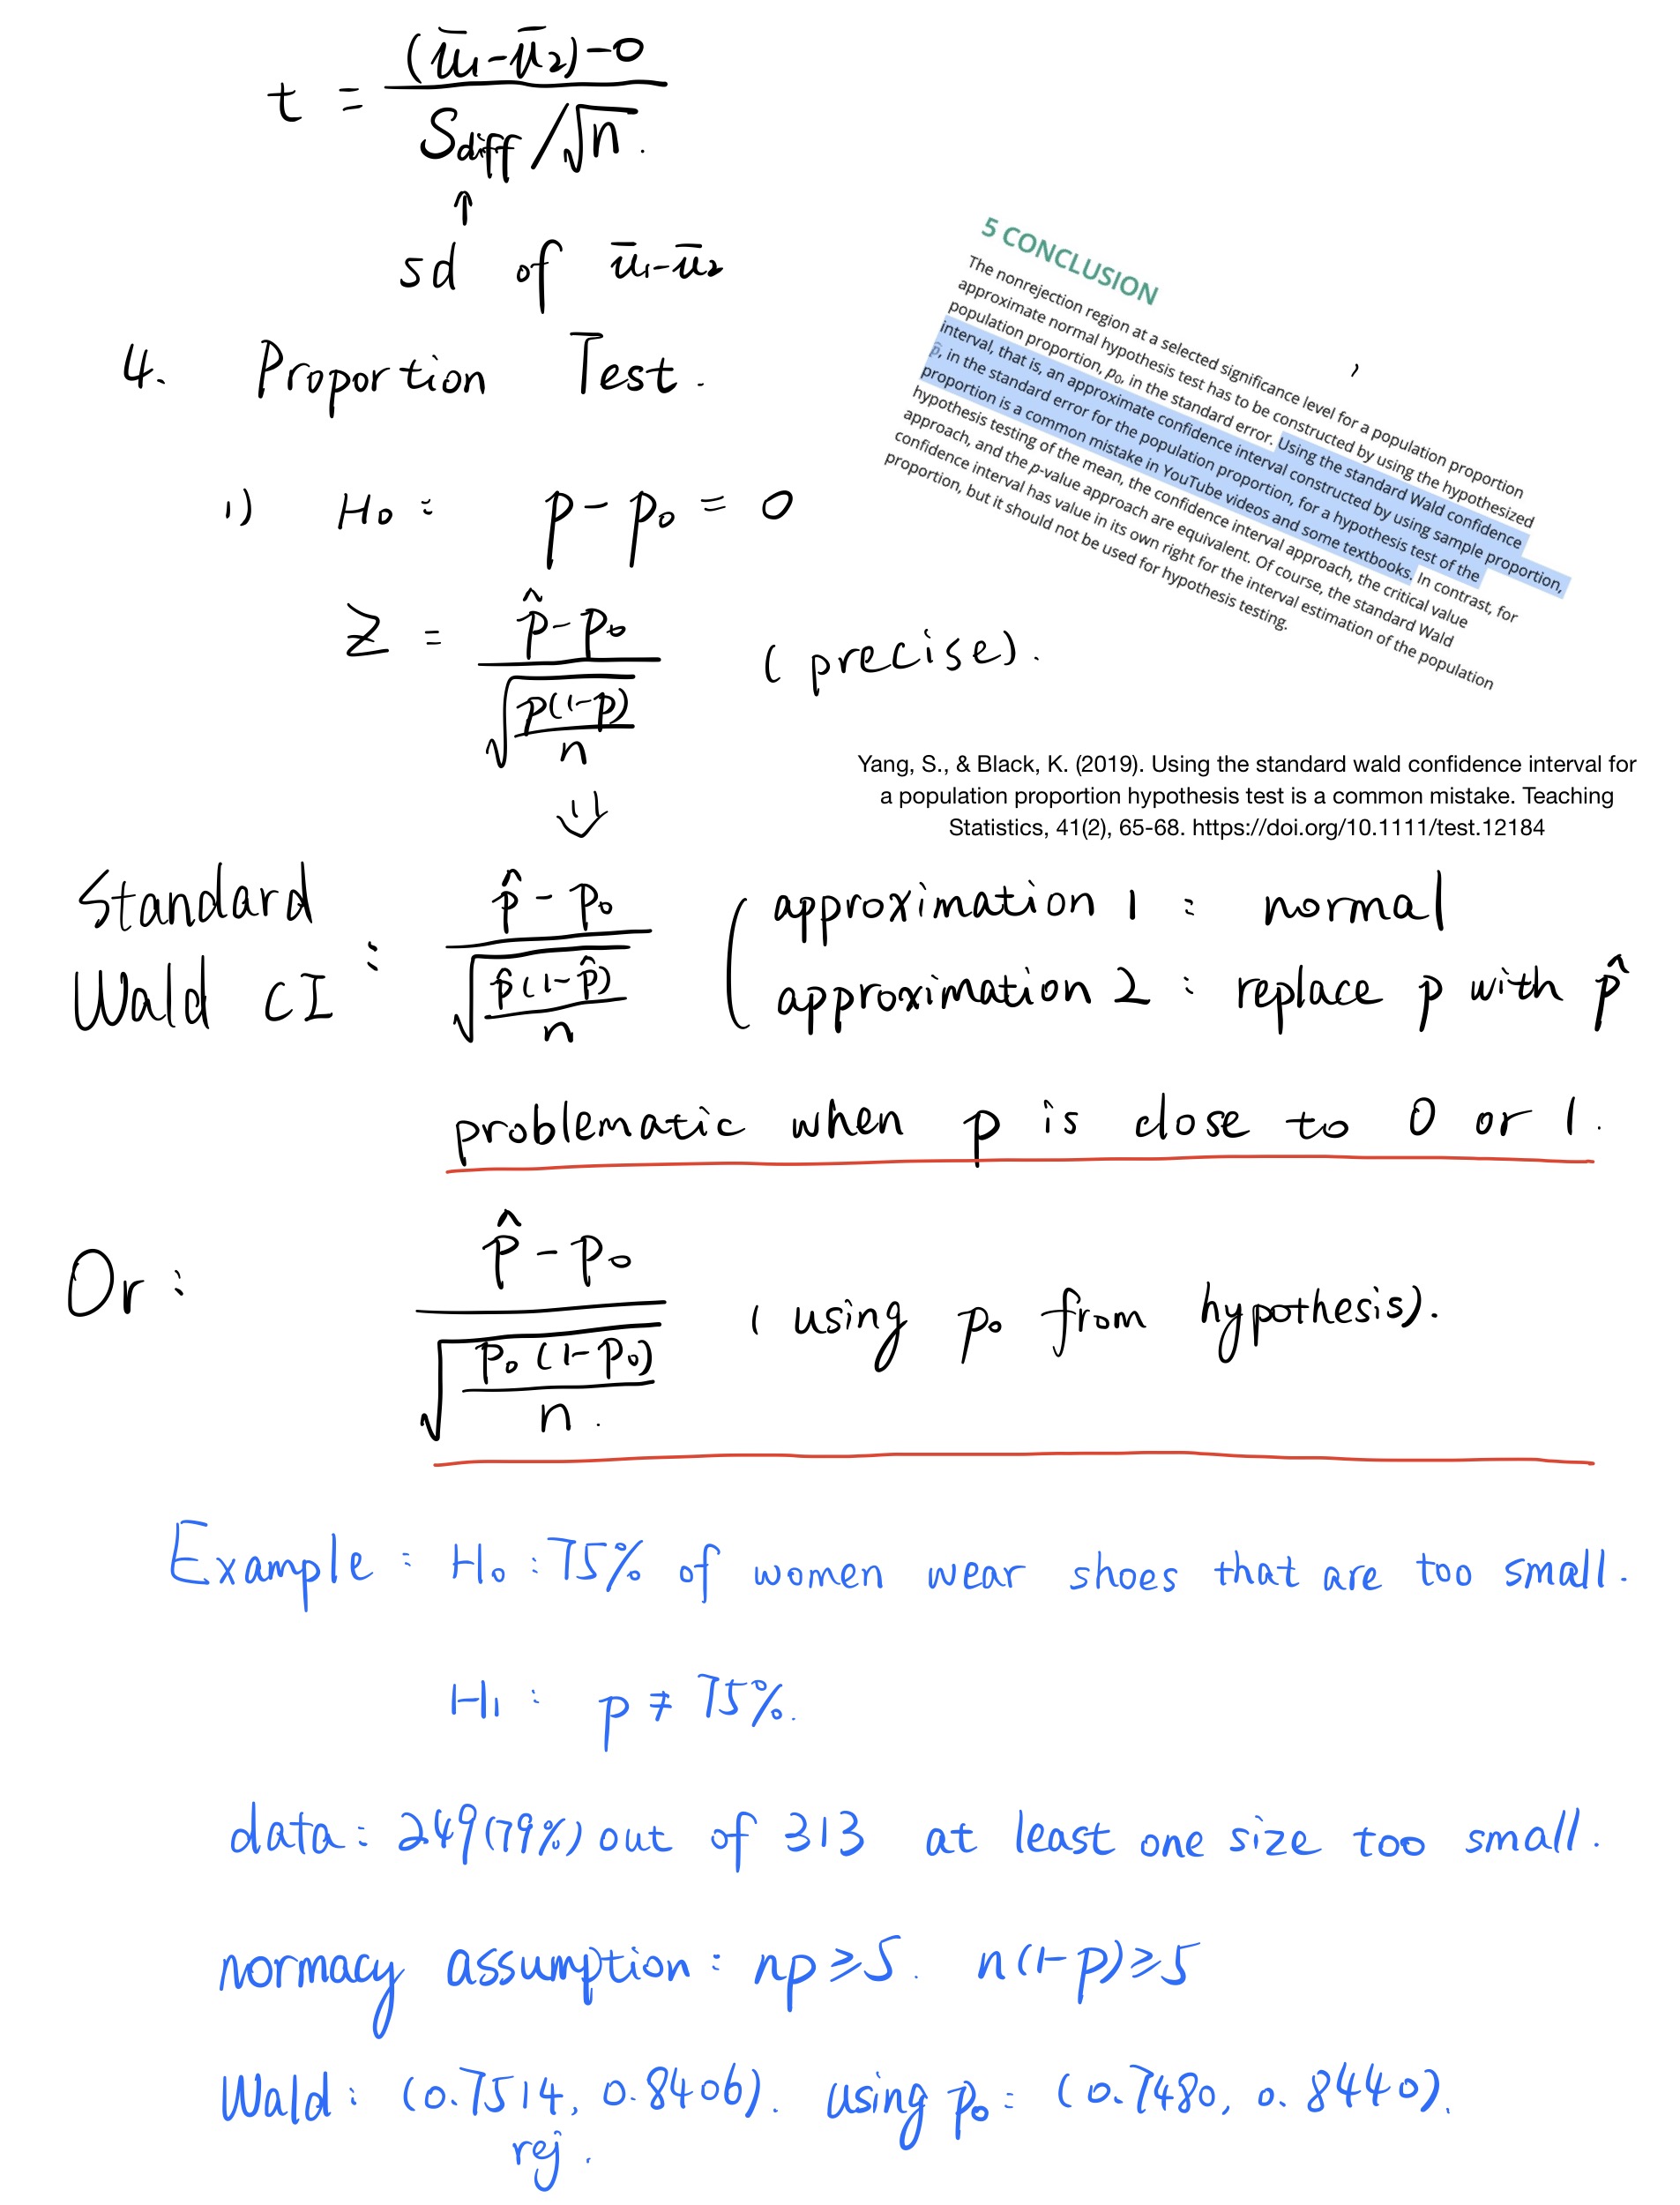 t = \frac{(\bar{u}_1-\bar{u}_2)-0}{S_{diff}/\sqrt{n}}.
↑
sd of \bar{u}_1-\bar{u}_2
4. Proportion Test.
1) H₀: p - p₀ = 0
Z = \frac{\hat{p}-p_0}{\sqrt{\frac{p(1-p)}{n}}} (precise).
⇓
5 CONCLUSION
The nonrejection region at a selected significance level for a population proportion
approximate normal hypothesis test has to be constructed by using the hypothesized
population proportion, p₀, in the standard error. Using the standard Wald confidence
interval, that is, an approximate confidence interval constructed by using sample proportion,
p̂, in the standard error for the population proportion, for a hypothesis test of the
proportion is a common mistake in YouTube videos and some textbooks. In contrast, for
hypothesis testing of the mean, the confidence interval approach, the critical value
approach, and the p-value approach are equivalent. Of course, the standard Wald
confidence interval has value in its own right for the interval estimation of the population
proportion, but it should not be used for hypothesis testing.
Yang, S., & Black, K. (2019). Using the standard wald confidence interval for
a population proportion hypothesis test is a common mistake. Teaching
Statistics, 41(2), 65-68. https://doi.org/10.1111/test.12184
Standard
Wald CI : \frac{\hat{p}-p_0}{\sqrt{\frac{\hat{p}(1-\hat{p})}{n}}}
approximation 1 : normal
approximation 2 : replace p with p̂
problematic when p is close to 0 or 1.
Or : \frac{\hat{p}-p_0}{\sqrt{\frac{p_0(1-p_0)}{n}}}. (using p₀ from hypothesis).
Example : H₀ : 75% of women wear shoes that are too small.
H₁ : p ≠ 75%.
data : 249(79%) out of 313 at least one size too small.
normacy assumption : np ≥ 5. n(1-p) ≥ 5
Wald : (0.7514, 0.8406). using p₀ : (0.7480, 0.8440).
rej.